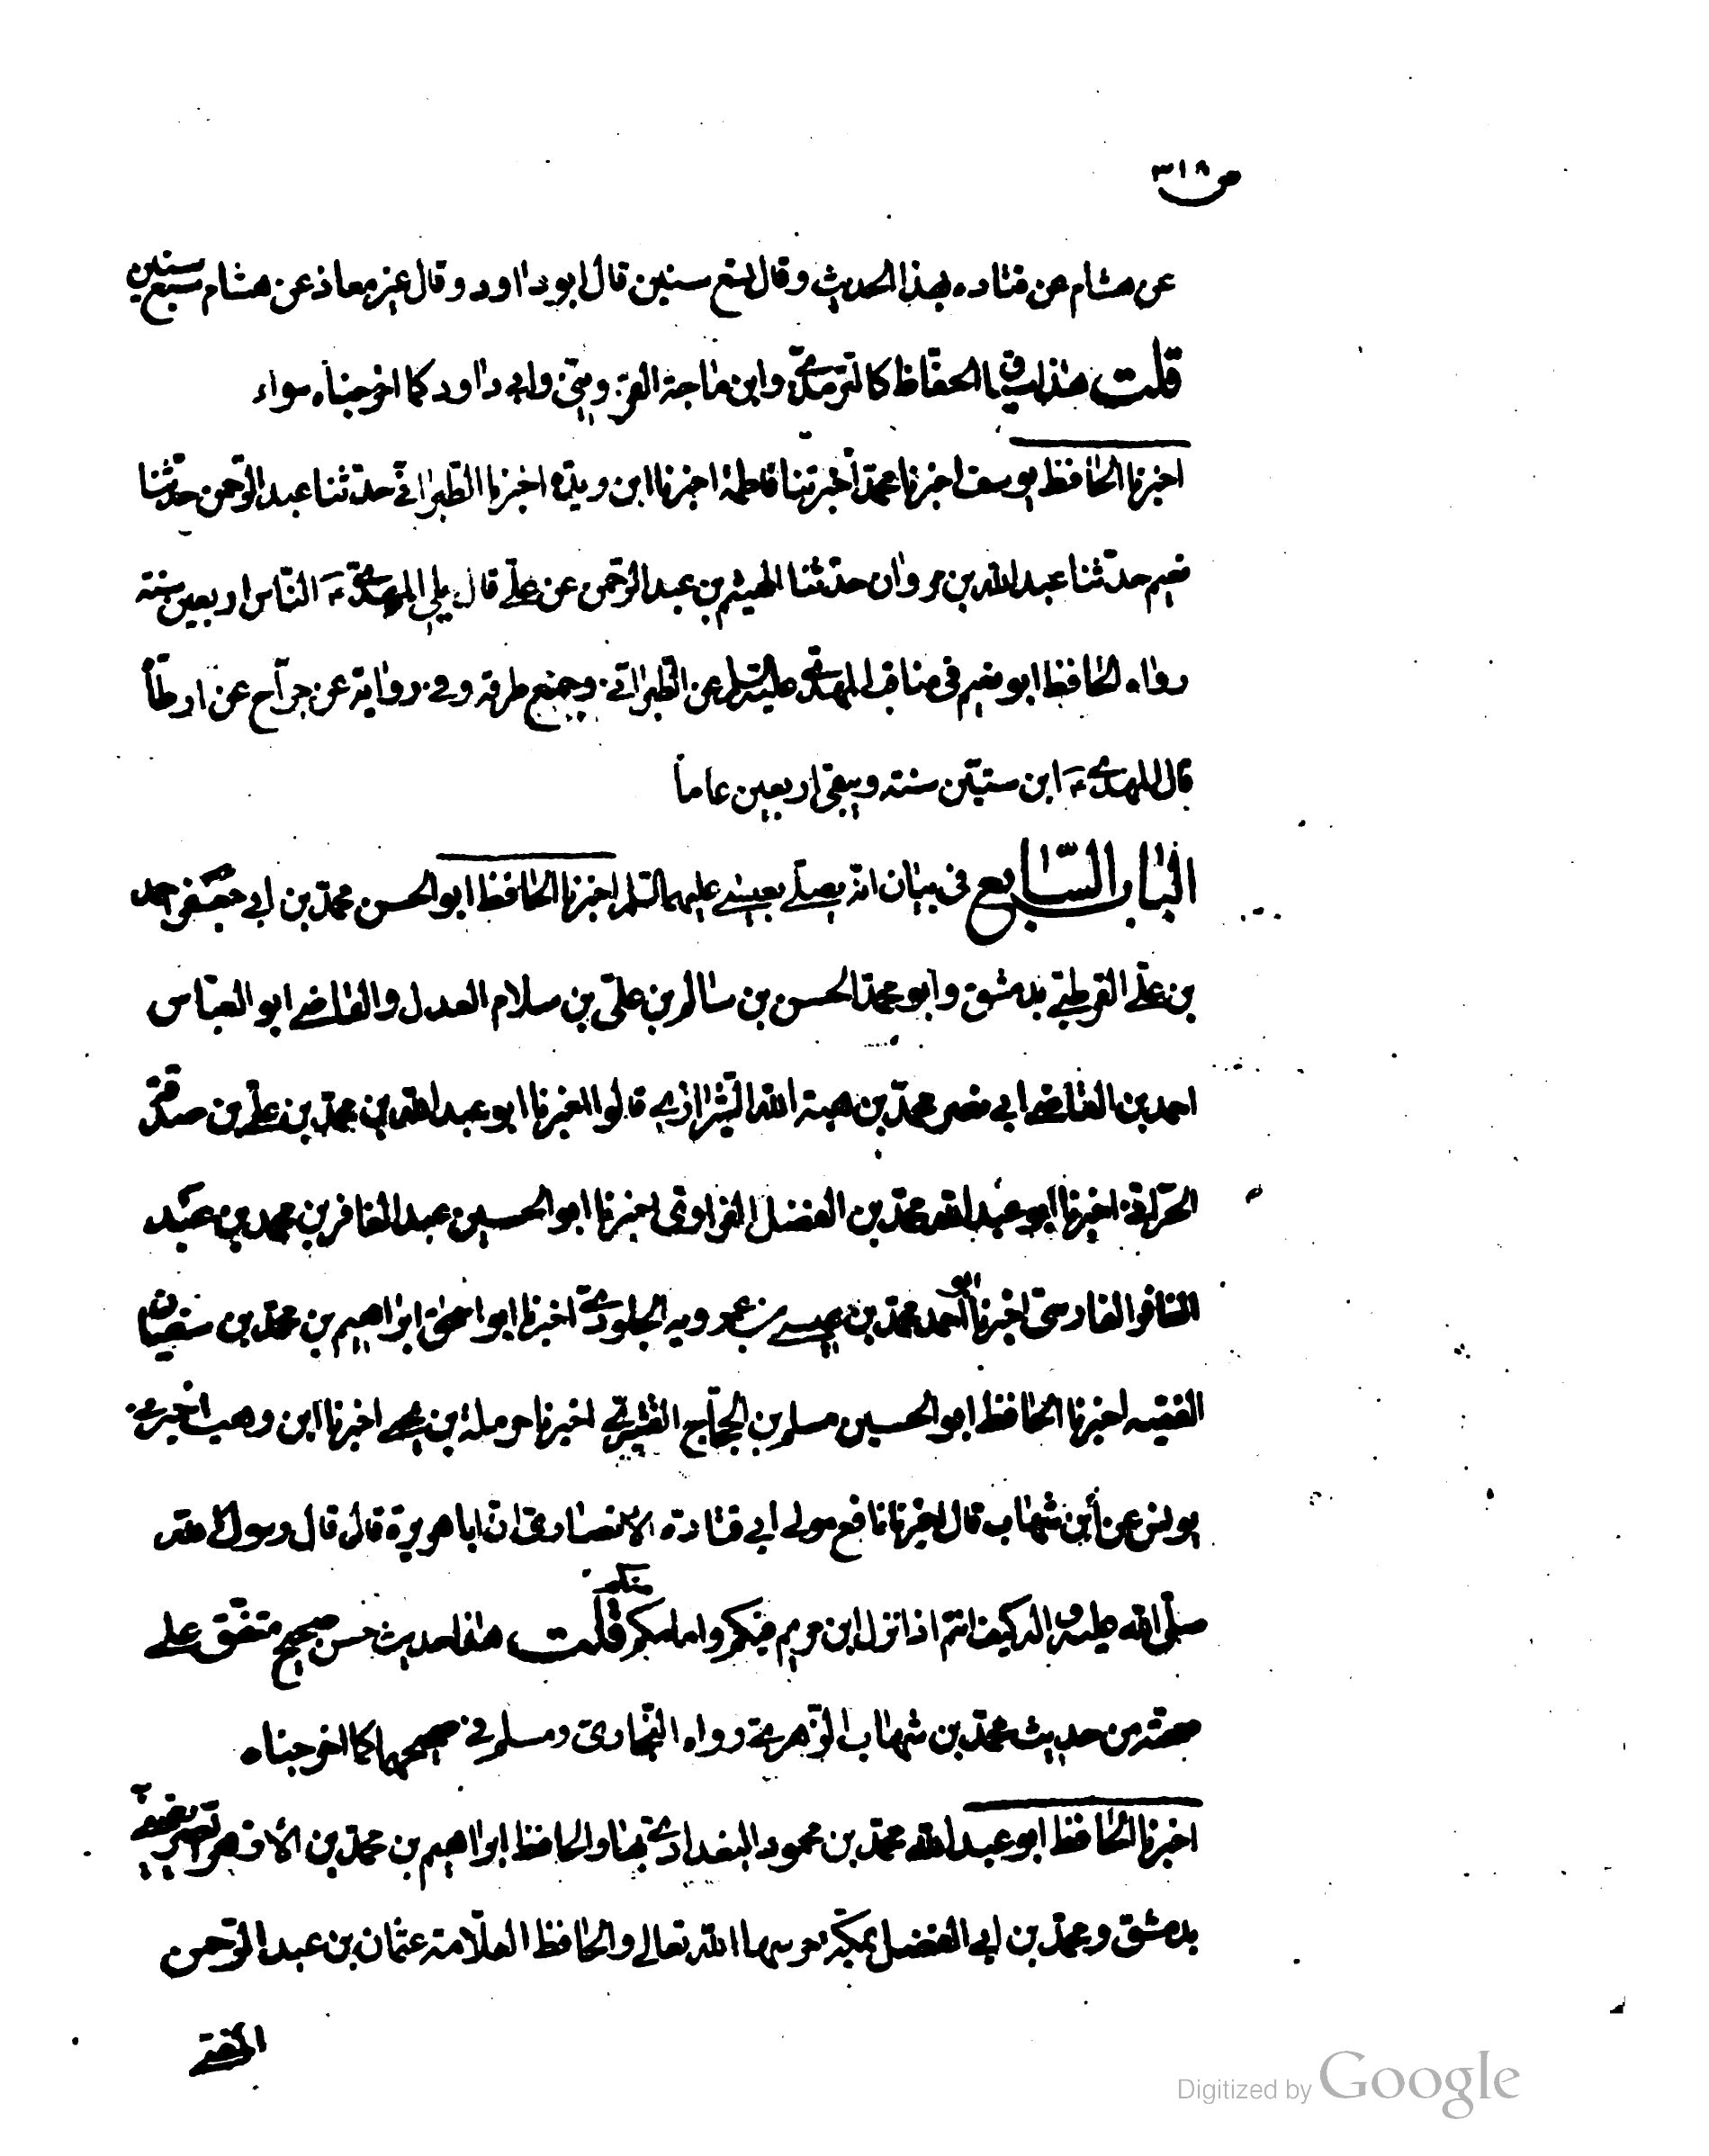 ص ٣١٨
عن هشام عن قتاده بهذا الحديث وقال تسع سنين قال ابو داود وقال غير معاذ عن هشام سبع سنين
قلت هذا سياق الحفّاظ كالترمذي وابن ماجة القزويني وابي داود كما اخرجناه سواء
اخبرنا الحافظ يوسف اخبرنا محمّد أخبرتنا فاطمة اخبرنا ابن ريذه اخبرنا الطبراني حدثنا عبد الرحمن حدثنا
نعيم حدثنا عبد الله بن مروان حدثنا الهيثم بن عبد الرحمن عن علي قال يلي المهدي ع الناس اربعين سنة
رواه الحافظ ابو نعيم في مناقب المهدي عليه السلم عن الطبراني وجمع طرقه وفي رواية عن جراح عن ارطأ
قال المهدي ع ابن ستين سنة ويبقى اربعين عاماً
الباب السّابع في بيان انّه يصلّي بعيسى عليهما السلم اخبرنا الحافظ ابو الحسن محمّد بن ابي جعفر احمد
بن علي القرطبي بدمشق وأبو محمد الحسن بن سالم بن علي بن سلام العدل والقاضي ابو العباس
احمد بن القاضي ابي نصر محمّد بن هبة الله الشيرازي قالوا اخبرنا ابو عبد الله بن محمّد بن علي بن صدقة
الحرّاني اخبرنا ابو عبد الله محمّد بن الفضل الفراوي اخبرنا ابو الحسين عبد الغافر بن محمد بن عبد
الغافر الفارسي اخبرنا ابو أحمد محمّد بن عيسى بن عمرويه الجلودي اخبرنا ابو اسحق ابراهيم بن محمّد بن سفيان
الفقيه اخبرنا الحافظ ابو الحسين مسلم بن الحجّاج القشيري اخبرنا حرملة بن يحيى اخبرنا ابن وهب اخبرني
يونس عن أبن شهاب قال اخبرنا نافع مولى ابي قتادة الانصاري انّ ابا هريرة قال قال رسول الله
صلّى الله عليه واله كيف انتم اذا نزل ابن مريم فيكم وامامكم منكم قلت هذا حديث حسن صحيح متفق على
صحته من حديث محمّد بن شهاب الزهري رواه البخاري ومسلم في صحيحهما كما اخرجناه
اخبرنا الحافظ ابو عبد الله محمّد بن محمود البغدادي بها والحافظ ابراهيم بن محمّد بن الأزهر الصريفيني
بدمشق ومحمّد بن ابي الفضل بمكّة حرسها الله تعالى والحافظ العلّامة عثمان بن عبد الرحمن
المفتي
Digitized by Google